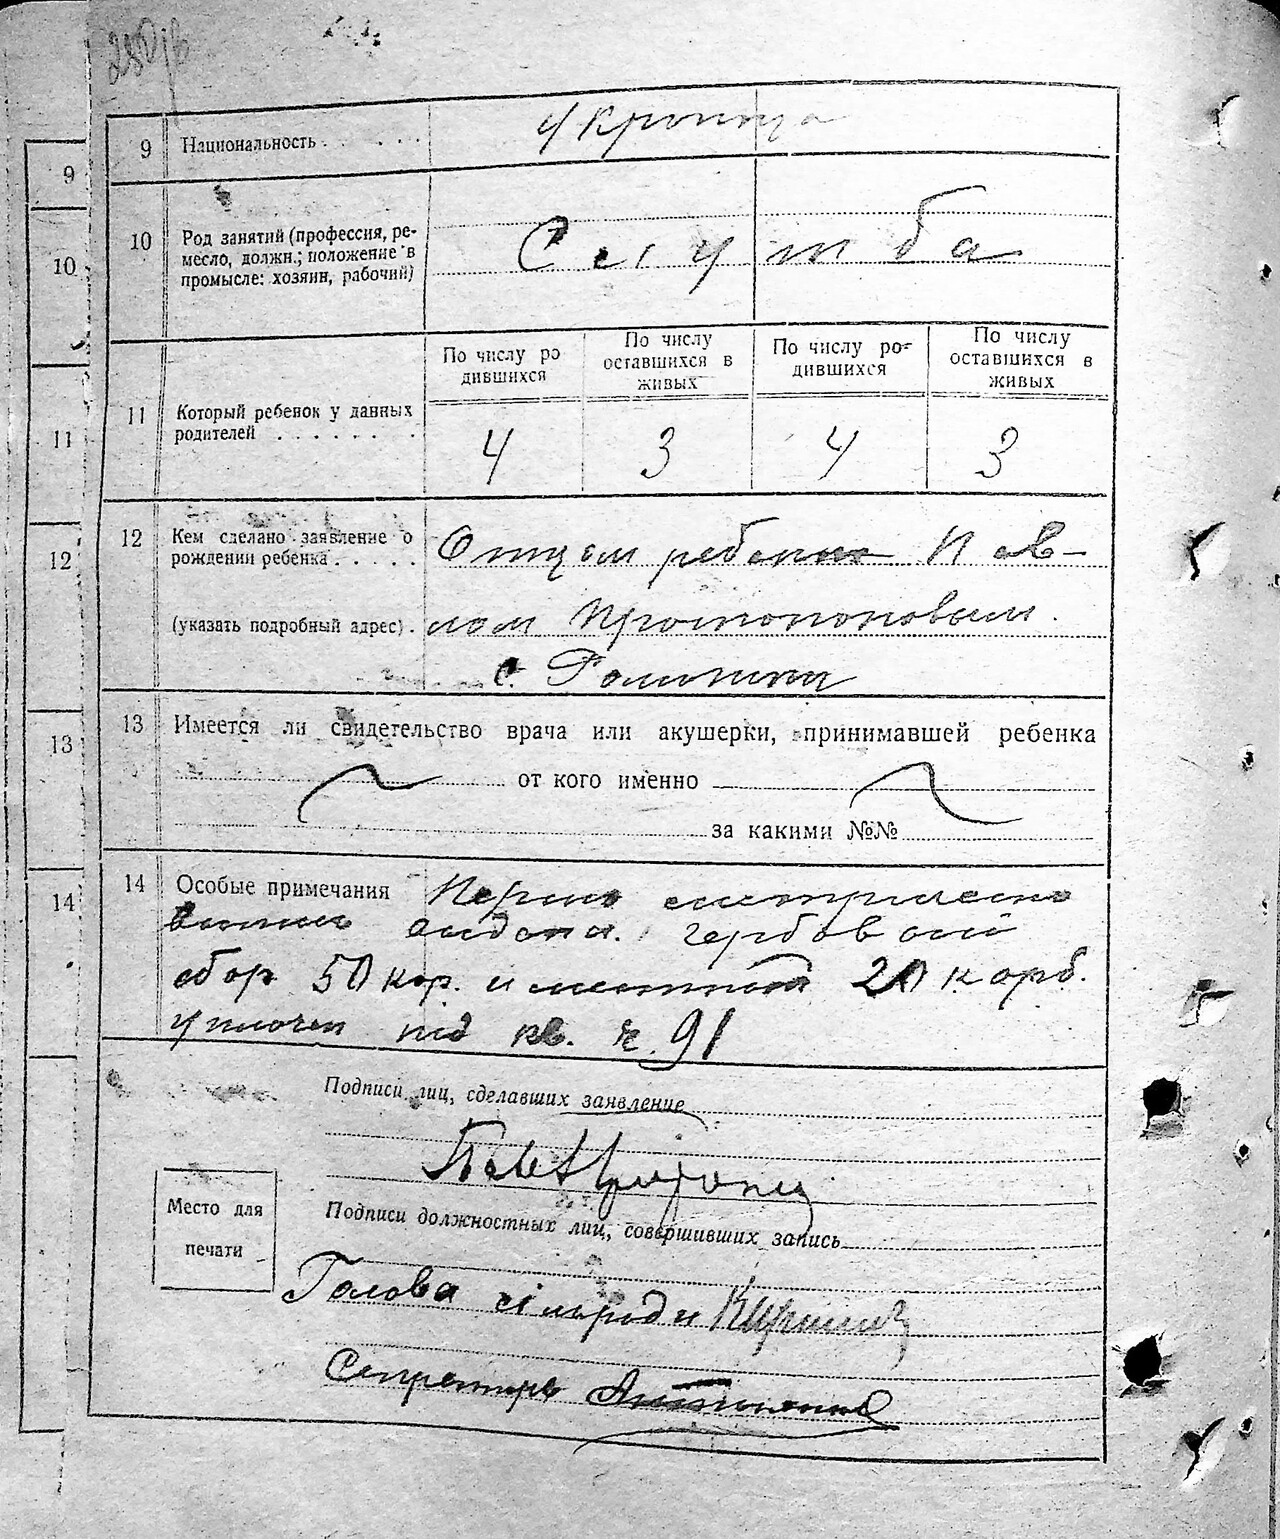 9
10
11
12
13
14
9 Национальность . . . . . Українця
10 Род занятий (профессия, ре-
месло, должн.; положение в
промысле: хозяин, рабочий)
Служба
11 Который ребенок у данных
родителей . . . . . . . .
По числу ро
дившихся
По числу
оставшихся в
живых
По числу ро-
дившихся
По числу
оставшихся в
живых
4 3 4 3
12 Кем сделано заявление о
рождении ребенка . . . . .
(указать подробный адрес) .
Отцем ребенка Пав-
лом Протопоповым.
с.
13 Имеется ли свидетельство врача или акушерки, принимавшей ребенка
от кого именно
за какими №№
14 Особые примечания
видана. гербовий
сбор 50 коп. и местний 20 карб.
уплочен под кв. № 91
Подписи лиц, сделавших заявление
Место для
печати
Подписи должностных лиц, совершивших запись
Голова сільради
Секретарь